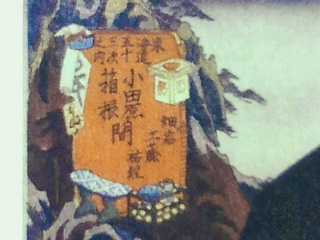 東
海道
五十
三次
之内
小田原
箱根
間
畑宿
工藤
祐経